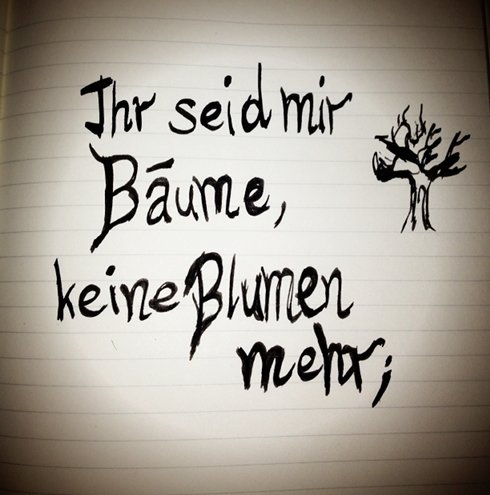 Ihr seid mir
Bäume,
keine Blumen
mehr;